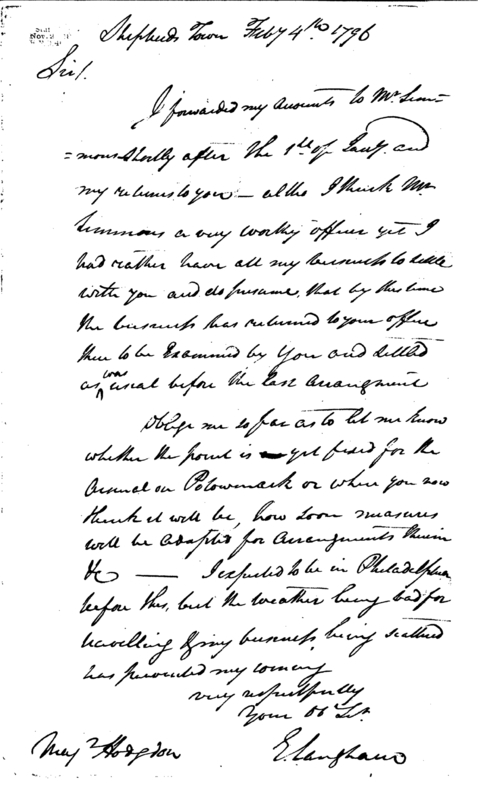 Shepherds Town Feby 4th 1796
Sir/
I forwarded my accounts to Mr Sim=
=mons shortly after the 1st of Jany. and
my returns to you — altho I think Mr
Simmons a very worthy officer yet I
had rather have all my business to settle
with you and do presume, that by this time
the business has returned to your office
there to be Examined by You and Settled
as was usual before the last arrangment
Oblige me so far as to let me know
whether the point is yet fixed for the
Arsenal on Potowmack or where you now
think it will be, how soon measures
will be adopted for arrangments therein
&c — I expected to be in Philadelphia
before this, but the weather being bad for
travelling & my business being scattered
has prevented my coming
very respectfully
Your Ob St.
Majr Hodgdon
E. Langham